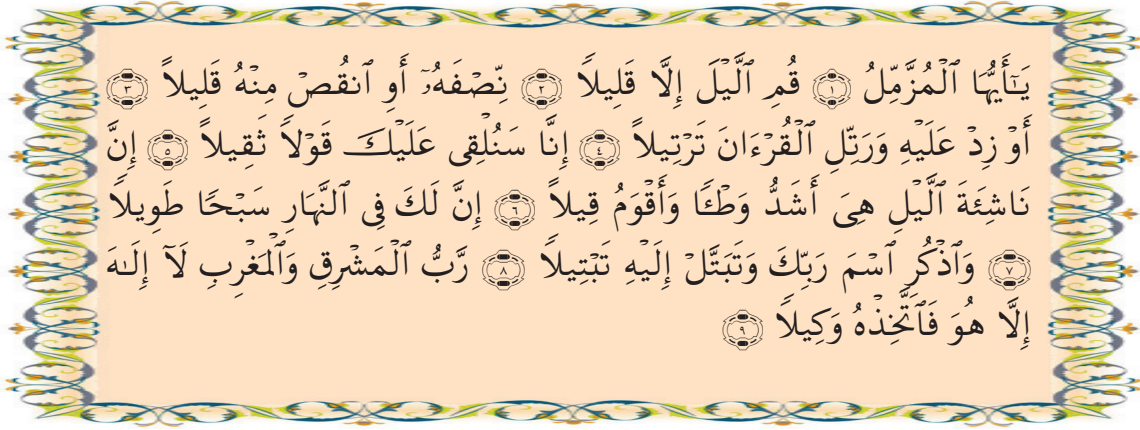 يَـٰٓأَيُّهَا ٱلْمُزَّمِّلُ ١ قُمِ ٱلَّيْلَ إِلَّا قَلِيلاً ٢ نِّصْفَهُۥٓ أَوِ ٱنقُصْ مِنْهُ قَلِيلاً ٣
أَوْ زِدْ عَلَيْهِ وَرَتِّلِ ٱلْقُرْءَانَ تَرْتِيلاً ٤ إِنَّا سَنُلْقِى عَلَيْكَ قَوْلاً ثَقِيلاً ٥ إِنَّ
نَاشِئَةَ ٱلَّيْلِ هِىَ أَشَدُّ وَطْـًٔا وَأَقْوَمُ قِيلاً ٦ إِنَّ لَكَ فِى ٱلنَّهَارِ سَبْحًا طَوِيلاً
٧ وَٱذْكُرِ ٱسْمَ رَبِّكَ وَتَبَتَّلْ إِلَيْهِ تَبْتِيلاً ٨ رَّبُّ ٱلْمَشْرِقِ وَٱلْمَغْرِبِ لَآ إِلَـٰهَ
إِلَّا هُوَ فَٱتَّخِذْهُ وَكِيلاً ٩